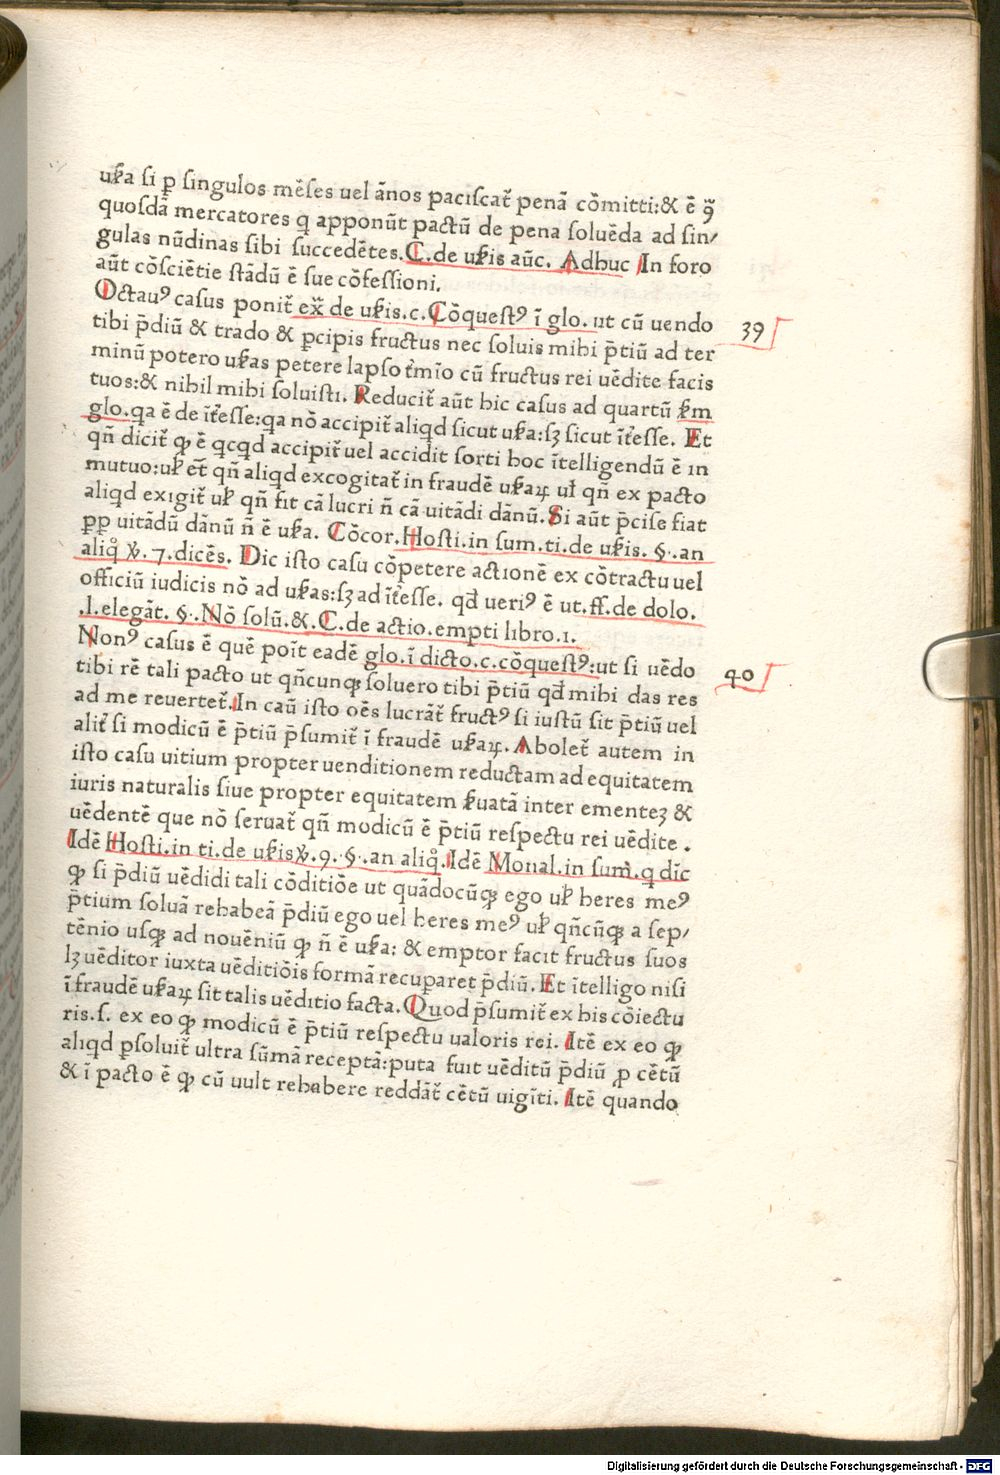 uſ̶a ſi ꝑ ſingulos mēſes uel ānos paciſcat̄ penā cōmitti:& ē ꝯͣ
quoſdā mercatores q apponūt pactū de pena ſoluēda ad ſin/
gulas nūdinas ſibi ſuccedētes.C.de uſ̶is aūc. Adhuc In foro
aūt cōſciētie ſtādū ē ſue cōfeſſioni.
Octauꝰ caſus ponit̄ ex̄ de uſ̶is.c.Cōqueſtꝰ ī glo. ut cū uendo
39
tibi p̄diū & trado & ꝑcipis fructus nec ſoluis mihi p̄tiū ad ter
minū potero uſ̶as petere lapſo t̄mīo cū fructus rei uēdite facis
tuos:& nihil mihi ſoluiſti. Reducit̄ aūt hic caſus ad quartū ſ̶m
glo.qa ē de īt̄eſſe:qa nō accipit̄ aliqd ſicut uſ̶a:ſꝫ ſicut īt̄eſſe. Et
qn̄ dicit̄ ꝙ ē qcqd accipit̄ uel accidit ſorti hoc ītelligendū ē in
mutuo:uł et̄ qn̄ aliqd excogitat̄ in fraudē uſ̶aꝝ uł qn̄ ex pacto
aliqd exigit̄ uł qn̄ fit cā lucri n̄ cā uitādi dānū.Si aūt p̄ciſe fiat
ꝓpꝑ uitādū dānū n̄ ē uſ̶a. Cōcor.Hoſti.in ſum.ti.de uſ̶is. §.an
aliq̊ ꝟ. 7.dicēs. Dic iſto caſu cōpetere actionē ex cōtractu uel
officiū iudicis nō ad uſ̶as:ſꝫ ad īt̄eſſe. qđ ueriꝰ ē ut.ff.de dolo.
.l.elegāt. §.Nō ſolū.&.C.de actio.empti libro.1.
Nonꝰ caſus ē quē poīt eadē glo.ī dicto.c.cōqueſtꝰ:ut ſi uēdo
40
tibi rē tali pacto ut qn̄cunqꝫ ſoluero tibi p̄tiū qđ mihi das res
ad me reuertet̄.In caū iſto oēs lucrāt̄ fructꝰ ſi iuſtū ſit p̄tiū uel
alit̄ ſi modicū ē p̄tiū p̄ſumit̄ ī fraudē uſ̶aꝝ.Abolet̄ autem in
iſto caſu uitium propter uenditionem reductam ad equitatem
iuris naturalis ſiue propter equitatem ſ̶uatā inter ementeꝫ &
uēdentē que nō ſeruat̄ qn̄ modicū ē p̄tiū reſpectu rei uēdite .
Idē Hoſti.in ti.de uſ̶isꝟ.9.§.an aliq̊.Idē Monal.in ſum̄.q dīc
ꝙ ſi p̄diū uēdidi tali cōditiōe ut quādocūqꝫ ego uł heres meꝰ
p̄tium ſoluā rehabeā p̄diū ego uel heres meꝰ uł qn̄cūqꝫ a ſep/
tēnio uſqꝫ ad nouēniū ꝙ n̄ ē uſ̶a: & emptor facit fructus ſuos
lꝫ uēditor iuxta uēditiōis formā recuparet p̄diū. Et ītelligo niſi
ī fraudē uſ̶aꝝ ſit talis uēditio facta.Quod p̄ſumit̄ ex his cōiectu
ris.ſ. ex eo ꝙ modicū ē p̄tiū reſpectu ualoris rei. Itē ex eo ꝙ
aliqd ꝑſoluit̄ ultra ſūmā receptā:puta fuit uēditū p̄diū ꝓ cētū
& ī pacto ē ꝙ cū uult rehabere reddāt̄ cētū uigīti. Itē quando
Digitalisierung gefördert durch die Deutsche Forschungsgemeinschaft - DFG